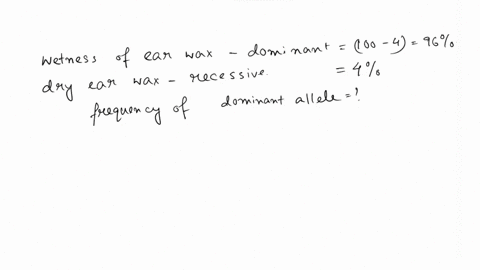 wetness of ear wax - dominant = (100 - 4) = 96%
dry ear wax - recessive. = 4%
frequency of dominant allele = ?